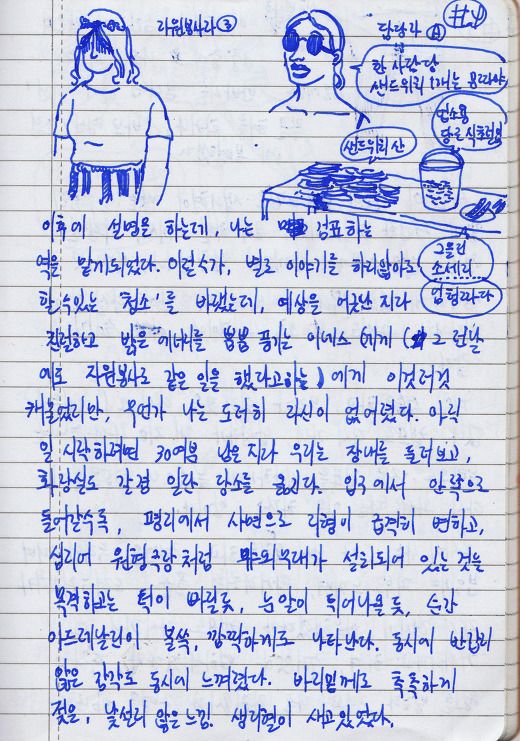 자원봉사자 ③
담당자 Ⓐ
#4
한 사람당
샌드위치 1개는 몸따야
샌드위치 산
민소용
당근 식초절임
그을린
소세지
엎힐라다
이후에 설명을 하는데, 나는 검표하는
역을 맡게되었다. 이럴수가, 별로 이야기를 하지않아도
할 수 있는 '청소'를 바랬는데, 예상을 어긋난 지라
친절하고 밝은 에너지를 뿜뿜 풍기는 이네스에게 ( 그 전날
에도 자원봉사로 같은 일을 했다고하는) 에게 이것저것
캐물었지만, 무언가 나는 도저히 자신이 없어졌다. 아직
일 시작하려면 30여분 남은지라 우리는 장내를 둘러보고,
화장실도 갈겸 일단 장소를 옮긴다. 입구에서 안쪽으로
들어갈수록, 평지에서 사면으로 지형이 급격히 변하고,
심지어 원형극장처럼 야외무대가 설치되어 있는 것을
목격하고는 턱이 빠질듯, 눈알이 튀어나올듯, 순간
아드레날린이 불쑥, 깜찍하게도 나타난다. 동시에 반갑지
않은 감각도 동시에 느껴졌다. 바지밑께로 축축하게
젖은, 낯설지 않은 느낌. 생리혈이 새고 있었다.